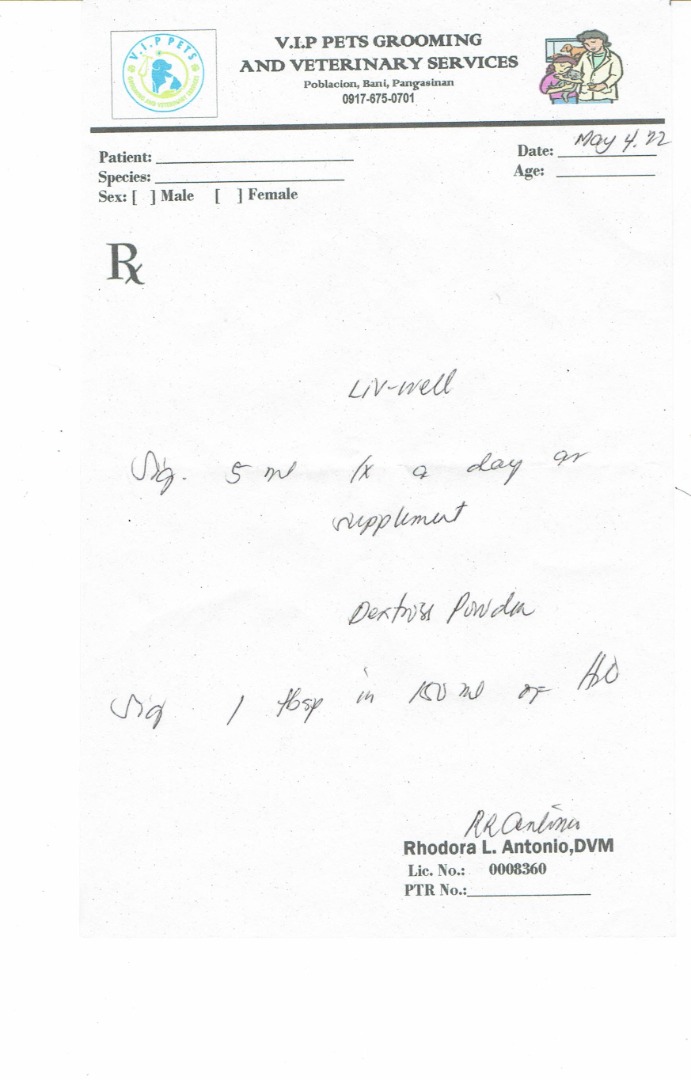 V.I.P PETS
GROOMING AND VETERINARY SERVICES
V.I.P PETS GROOMING
AND VETERINARY SERVICES
Poblacion, Bani, Pangasinan
0917-675-0701
Patient: Date: May 4. 22
Species: Age:
Sex: [ ] Male [ ] Female
Rx
Liv-well
Sig. 5 ml 1x a day as
supplement
Dextrose Powder
Sig 1 tbsp in 150 ml of H2O
Rhodora L. Antonio,DVM
Lic. No.: 0008360
PTR No.: